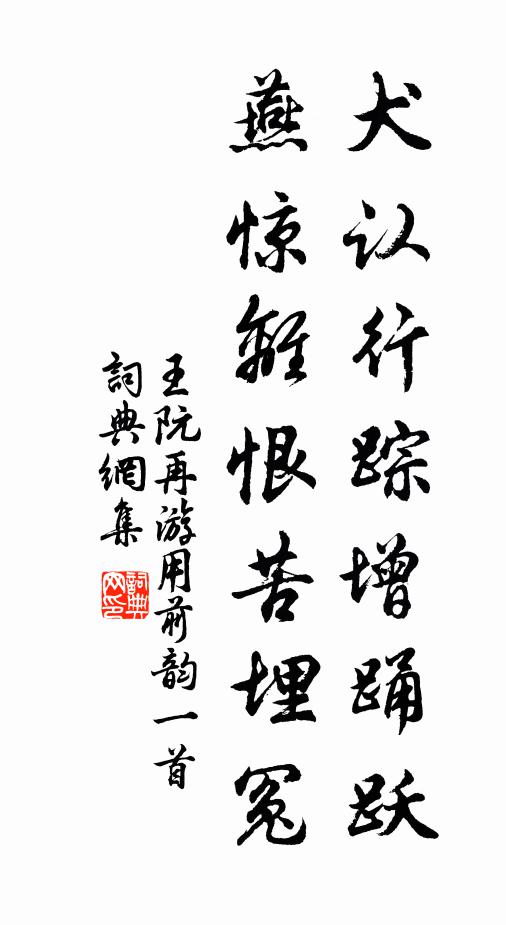 犬认行踪增踊跃
燕惊離恨苦埋冤
王阮再游用前韵一首
詞典網集
詞典网印